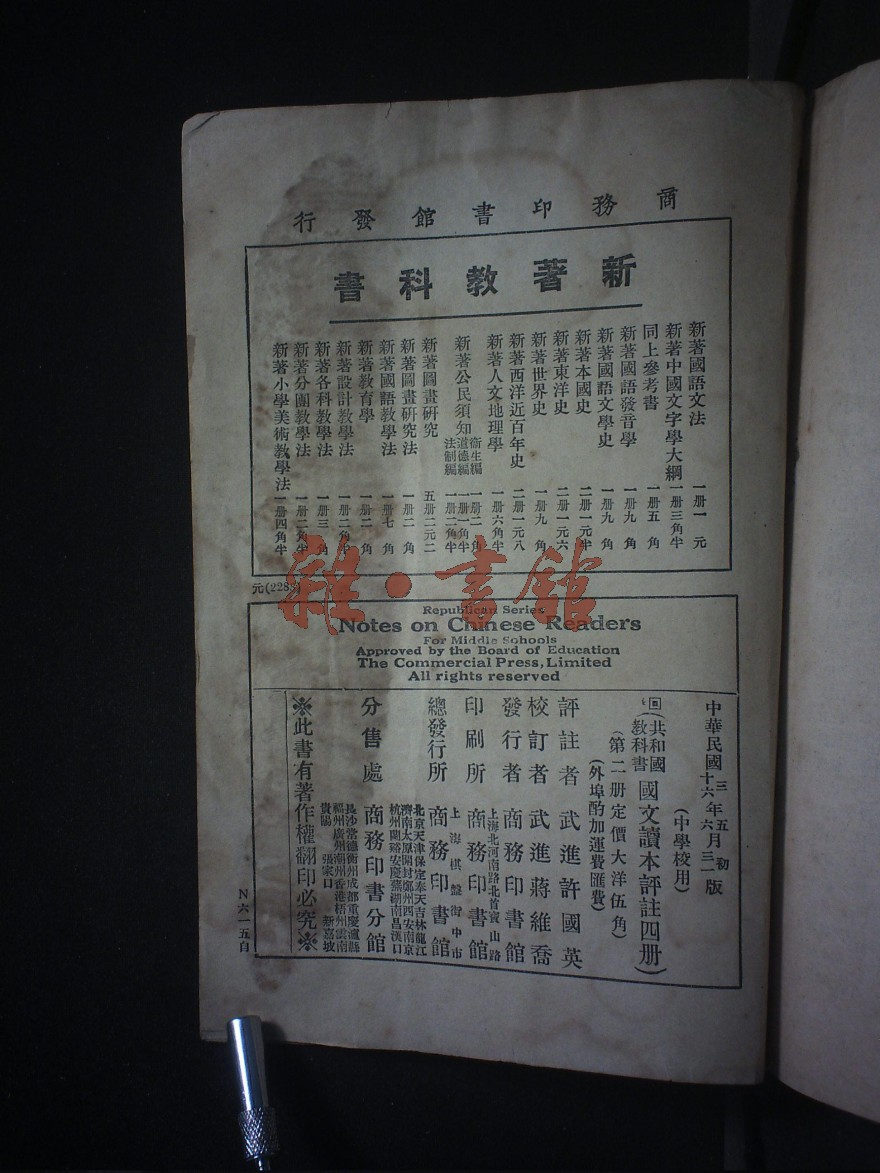 商務印書館發行
新著教科書
新著國語文法 一册一元
新著中國文字學大綱 一册三角半
同上參考書 一册五角
新著國語發音學 一册九角
新著國語文學史 一册九角
新著本國史 二册一元半
新著東洋史 二册一元六
新著世界史 一册九角
新著西洋近百年史 二册一元八
新著人文地理學 一册六角半
新著公民須知 衛生編 一册二角
道德編 一册一角半
法制編 一册二角半
新著圖畫研究 五册二元二
新著圖畫研究法 一册二角
新著國語教學法 一册七角
新著教育學 一册二角
新著設計教學法 一册二角半
新著各科教學法 一册三角
新著分團教學法 一册二角半
新著小學美術教學法 一册四角半
元(228)
雜·書館
Republican Series
Notes on Chinese Readers
For Middle Schools
Approved by the Board of Education
The Commercial Press, Limited
All rights reserved
中華民國三年五月初版
十六年六月三一版
(中學校用)
(共和國教科書國文讀本評註四册)
(第二册定價大洋伍角)
(外埠酌加運費匯費)
評註者 武進許國英
校訂者 武進蔣維喬
發行者 商務印書館
上海北河南路北首寶山路
印刷所 商務印書館
上海棋盤街中市
總發行所 商務印書館
北京天津保定奉天吉林龍江
濟南太原開封鄭州西安南京
杭州蘭谿安慶蕪湖南昌漢口
分售處 商務印書分館
長沙常德衡州成都重慶瀘縣
福州廣州潮州香港梧州雲南
貴陽 張家口 新嘉坡
※此書有著作權翻印必究※
N六一五自